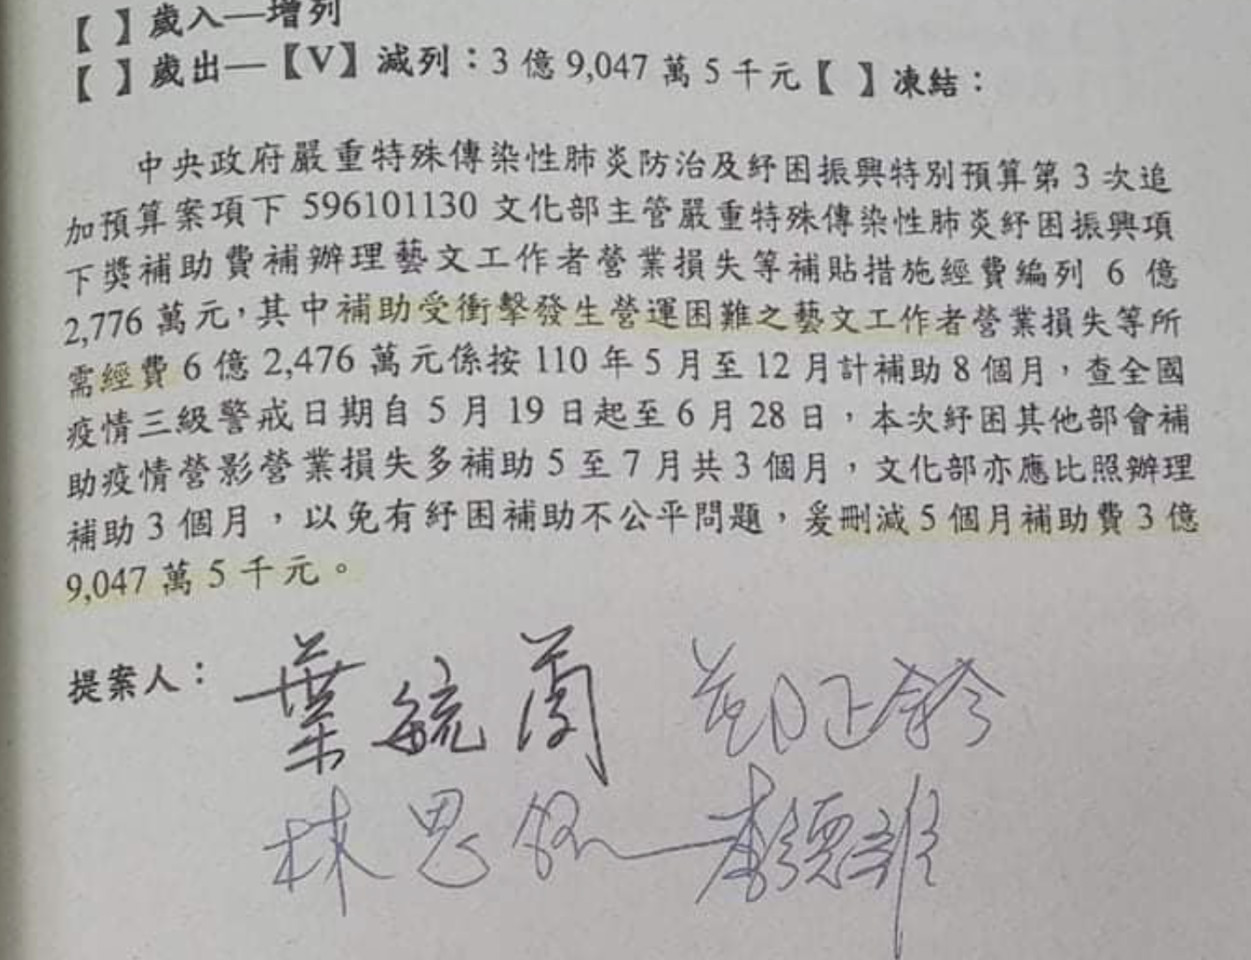 【 】歲入—增列
【 】歲出—【V】減列：3 億 9,047 萬 5 千元【 】凍結：
中央政府嚴重特殊傳染性肺炎防治及紓困振興特別預算第 3 次追
加預算案項下 596101130 文化部主管嚴重特殊傳染性肺炎紓困振興項
下獎補助費補辦理藝文工作者營業損失等補貼措施經費編列 6 億
2,776 萬元，其中補助受衝擊發生營運困難之藝文工作者營業損失等所
需經費 6 億 2,476 萬元係按 110 年 5 月至 12 月計補助 8 個月，查全國
疫情三級警戒日期自 5 月 19 日起至 6 月 28 日，本次紓困其他部會補
助疫情營影營業損失多補助 5 至 7 月共 3 個月，文化部亦應比照辦理
補助 3 個月，以免有紓困補助不公平問題，爰刪減 5 個月補助費 3 億
9,047 萬 5 千元。
提案人：葉毓蘭 鄭正鈐
林思銘 李德維